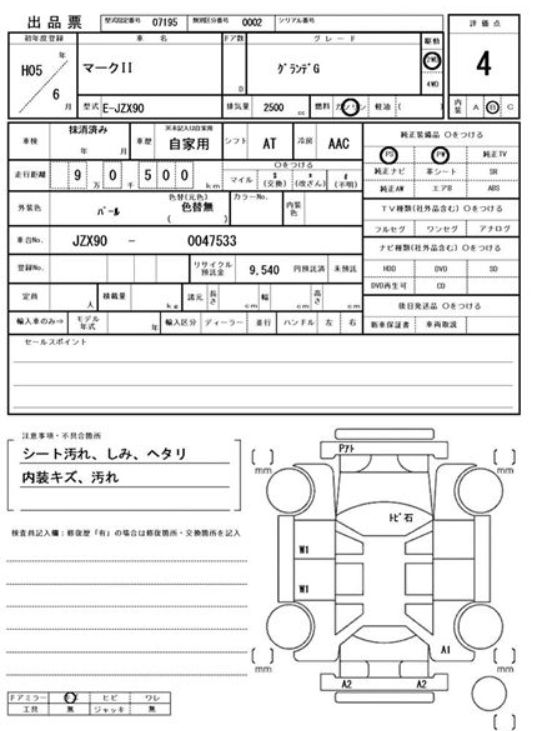 出品票 型式指定番号 07195 類別区分番号 0002 シリアル番号
評価点
4
初年度登録 車名 ドア数 グレード 駆動
H05 年
6 月
マークII
D
グランデG
2WD
4WD
型式 E-JZX90 排気量 2500 cc 燃料 ガソリン 軽油 ( )
内装 A B C
車検 抹消済み 年 月
車歴 ※未記入は自家用 自家用
シフト AT 冷房 AAC
走行距離 9 0 5 0 0 万 千 km
○をつける
マイル $ (交換) * (改ざん) # (不明)
外装色 パール 色替(元色) 色替無 ( )
カラーNo. 内装色
車台No. JZX90 - 0047533
登録No. リサイクル預託金 9,540 円預託済 未預託
定員 人 積載量 kg 諸元 長さ cm 幅 cm 高さ cm
輸入車のみ⇒ モデル年式 年 輸入区分 ディーラー 並行 ハンドル 左 右
純正装備品 ○をつける
PS PW 純正TV
純正ナビ 革シート SR
純正AW エアB ABS
TV種類(社外品含む) ○をつける
フルセグ ワンセグ アナログ
ナビ種類(社外品含む) ○をつける
HDD DVD SD
DVD再生可 CD
後日発送品 ○をつける
新車保証書 車両取説
セールスポイント
注意事項・不具合箇所
シート汚れ、しみ、ヘタリ
内装キズ、汚れ
検査員記入欄:修復歴「有」の場合は修復箇所・交換箇所を記入
[ ] mm
[ ] mm
Pアト
トビ石
W1
W1
A1
[ ] mm
[ ] mm
A2 A2
[ ]
ドアミラー キズ ヒビ ワレ
工具 無 ジャッキ 無